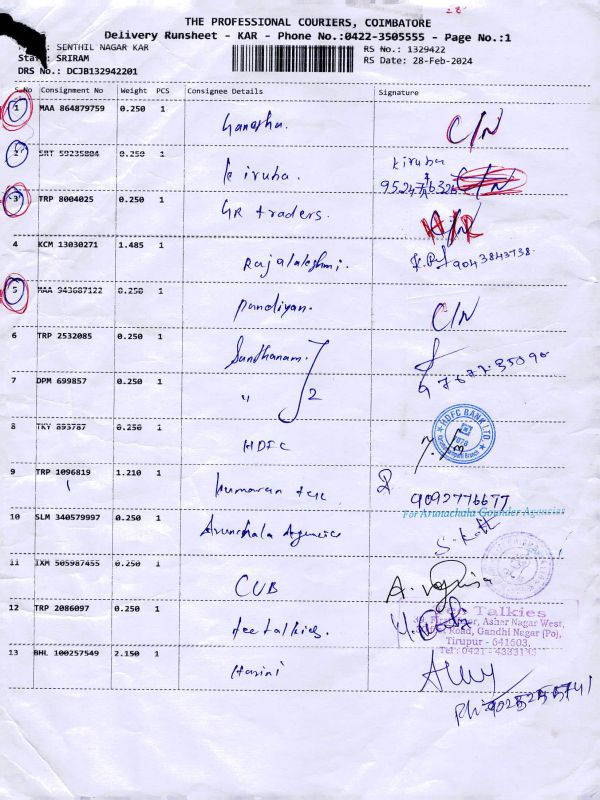 28
THE PROFESSIONAL COURIERS, COIMBATORE
Delivery Runsheet - KAR - Phone No.:0422-3505555 - Page No.:1
: SENTHIL NAGAR KAR
RS No.: 1329422
: SRIRAM
RS Date: 28-Feb-2024
DRS No.: DCJB132942201
S.No Consignment No Weight PCS Consignee Details Signature
1 MAA 864879759 0.250 1 Ganesha. C/N
2 SRT 59235804 0.250 1 Kiruba. Kiruba C/N
3 TRP 8004025 0.250 1 GR traders.
4 KCM 13030271 1.485 1 Rajalakshmi. 9043843738.
5 MAA 943687122 0.250 1 Pandiyan. C/N
6 TRP 2532085 0.250 1 Sandhanam.
7 DPM 699857 0.250 1 " 2
8 TKY 893787 0.250 1 HDFC HDFC BANK LTD
9 TRP 1096819 1.210 1 Kumaran tex 9092776677
For Arunachala Gounder Agencies
10 SLM 340579997 0.250 1 Arunchala Agencies
11 IXM 505987455 0.250 1 CUB
12 TRP 2086097 0.250 1 Tee talkies. Tee Talkies
Asher Nagar West,
Road, Gandhi Nagar (Po),
Tirupur - 641603,
Tel : 0421 -
13 BHL 100257549 2.150 1 Harini